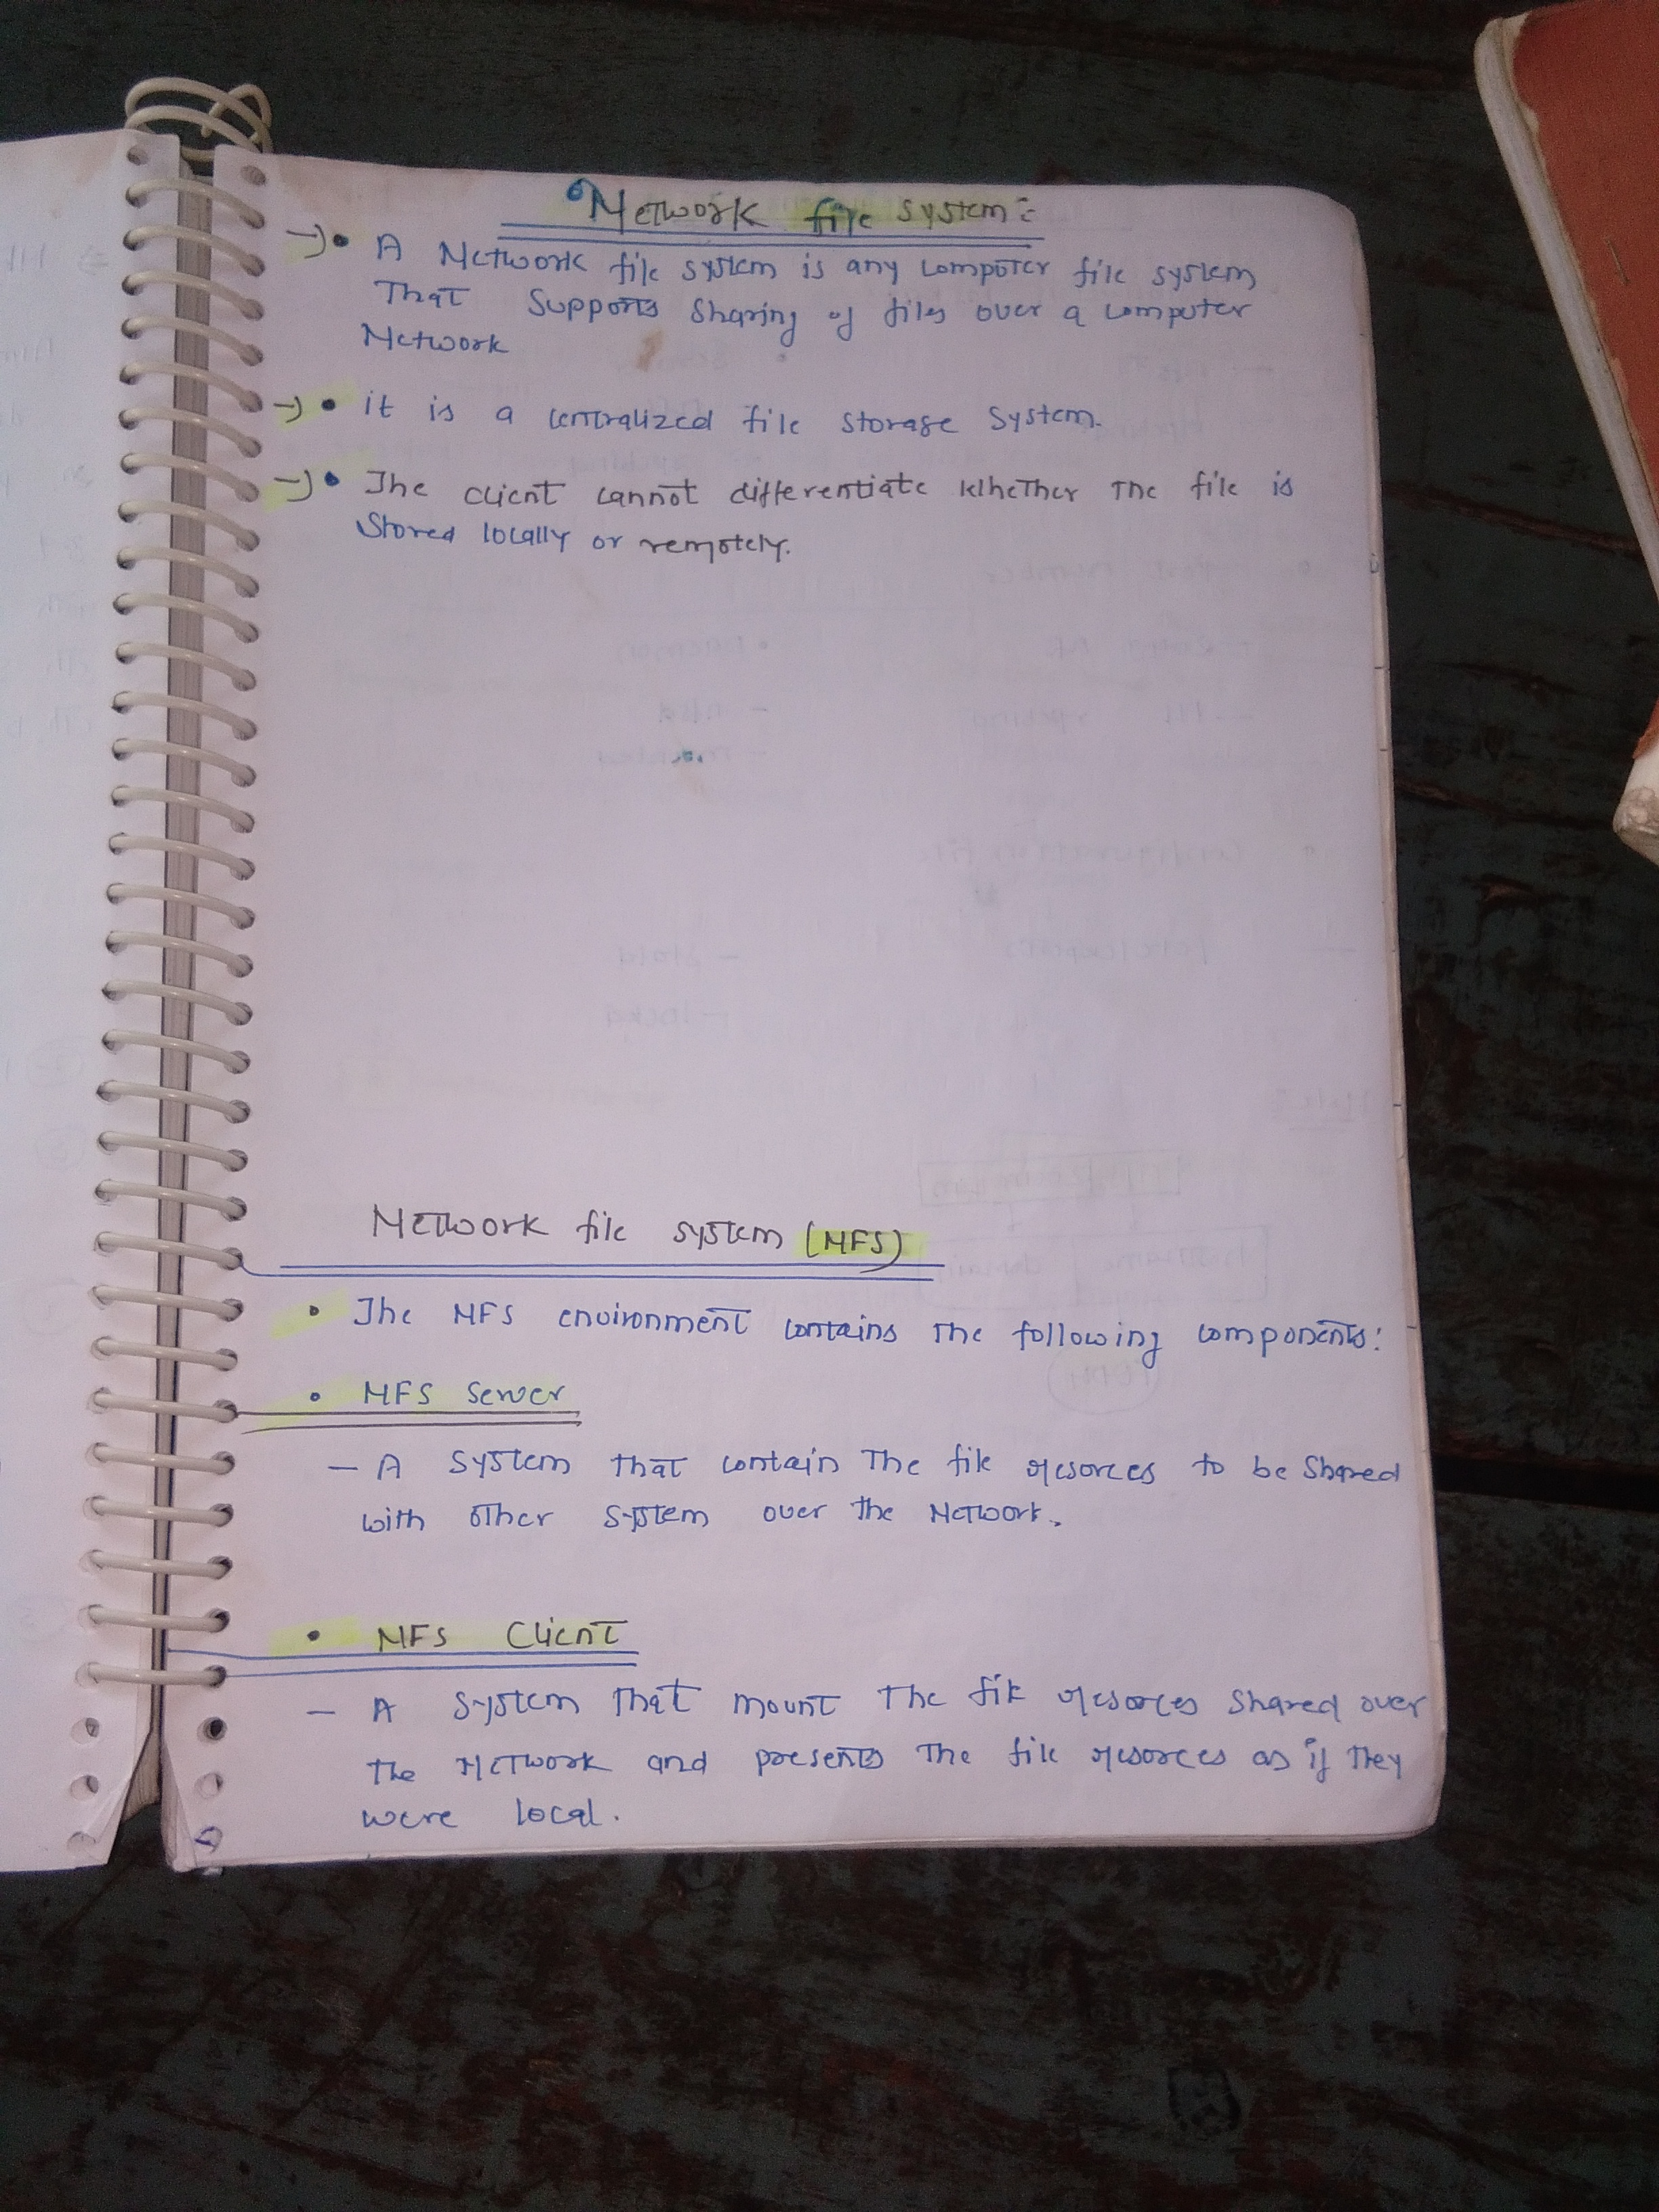 Network file system:
→• A Network file system is any computer file system
That Supports Sharing of files over a computer
Network
→• it is a centralized file storage system.
→• The client cannot differentiate Whether The file is
Stored locally or remotely.
Network file system (NFS)
• The NFS environment contains The following components:
• NFS Server
— A System that contain The file resorces to be Shared
with other System over the Network.
• NFS Client
— A System That mount The file resorces Shared over
The Network and presents The file resorces as if They
were local.